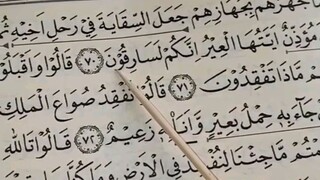 جَهَّزَهُم بِجَهَازِهِمْ جَعَلَ السِّقَايَةَ فِي رَحْلِ أَخِيهِ ثُمَّ
مُؤَذِّنٌ أَيَّتُهَا الْعِيرُ إِنَّكُمْ لَسَارِقُونَ ٧٠ قَالُوا وَأَقْبَلُوا
مَاذَا تَفْقِدُونَ ٧١ قَالُوا نَفْقِدُ صُوَاعَ الْمَلِكِ
جَاءَ بِهِ حِمْلُ بَعِيرٍ وَأَنَا بِهِ زَعِيمٌ ٧٢ قَالُوا تَاللَّهِ
مَّا جِئْنَا لِنُفْسِدَ فِي الْأَرْضِ وَمَا كُنَّا